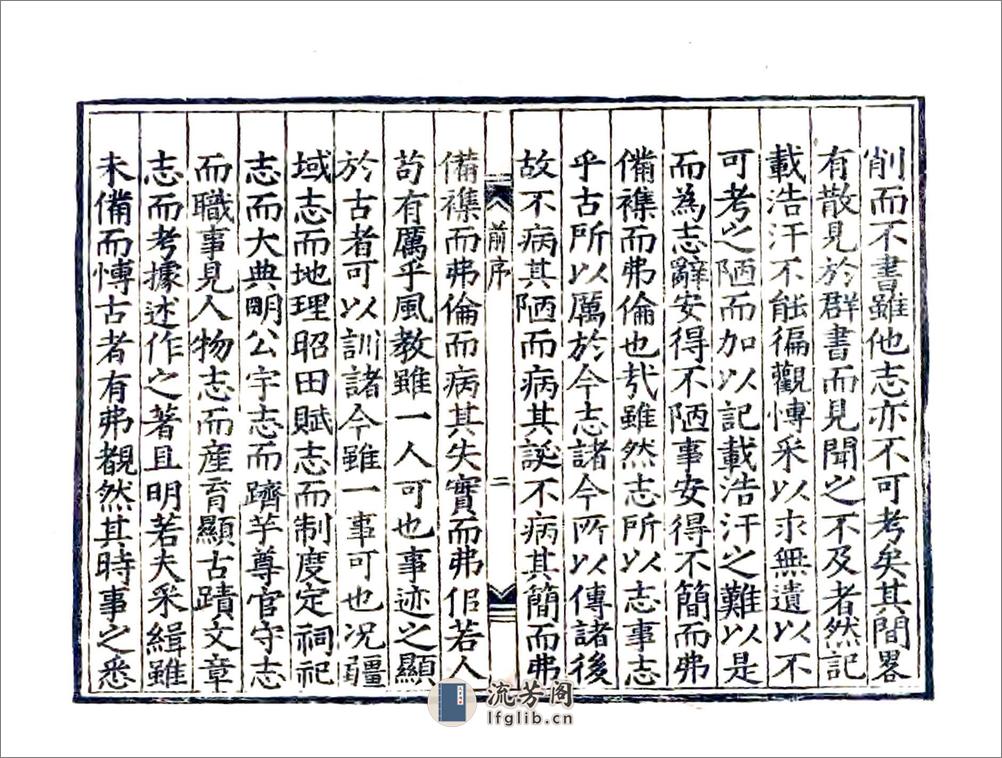 削而不書雖他志亦不可考矣其間畧
有散見於群書而見聞之不及者然記
載浩汗不能徧觀愽采以求無遺以不
可考之陋而加以記載浩汗之難以是
而為志辭安得不陋事安得不簡而弗
備襍而弗倫也㢤雖然志所以志事志
乎古所以厲於今志諸今所以傳諸後
故不病其陋而病其誕不病其簡而弗
前序
二
備襍而弗倫而病其失實而弗侣若人
苟有厲乎風教雖一人可也事迹之顯
於古者可以訓諸今雖一事可也况疆
域志而地理昭田賦志而制度定祠祀
志而大典明公宇志而躋竽尊官守志
而職事見人物志而産育顯古蹟文章
志而考據述作之著且明若夫采緝雖
未備而愽古者有弗覩然其時事之悉
流芳阁
lfglib.cn